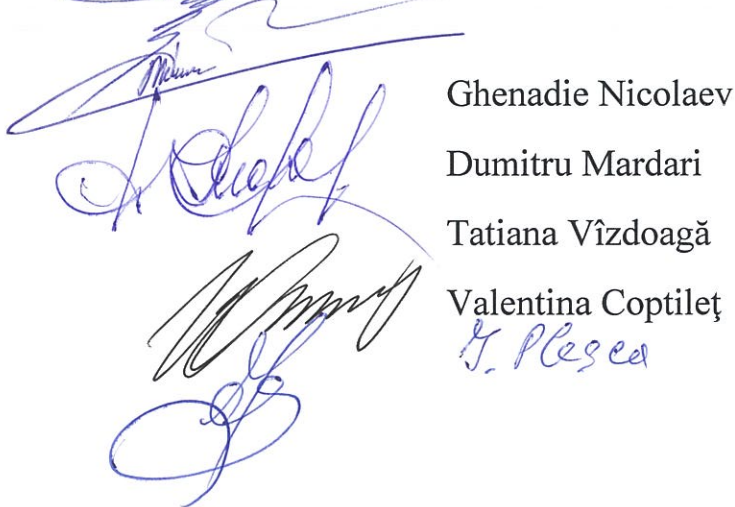 Ghenadie Nicolaev
Dumitru Mardari
Tatiana Vîzdoagă
Valentina Coptileţ
Pleşca